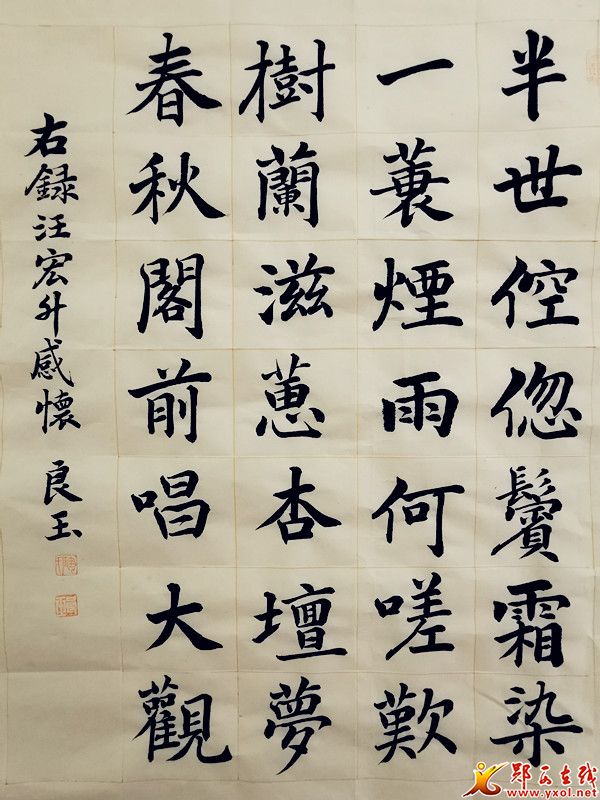 半世倥偬鬢霜染
一蓑煙雨何嗟歎
樹蘭滋蕙杏壇夢
春秋閣前唱大觀
右録汪宏升感懷 良玉
郧云在线
www.yxol.net